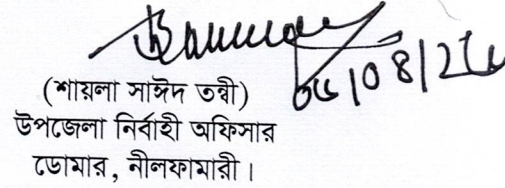 (শায়লা সাঈদ তন্বী)
উপজেলা নির্বাহী অফিসার
ডোমার, নীলফামারী।